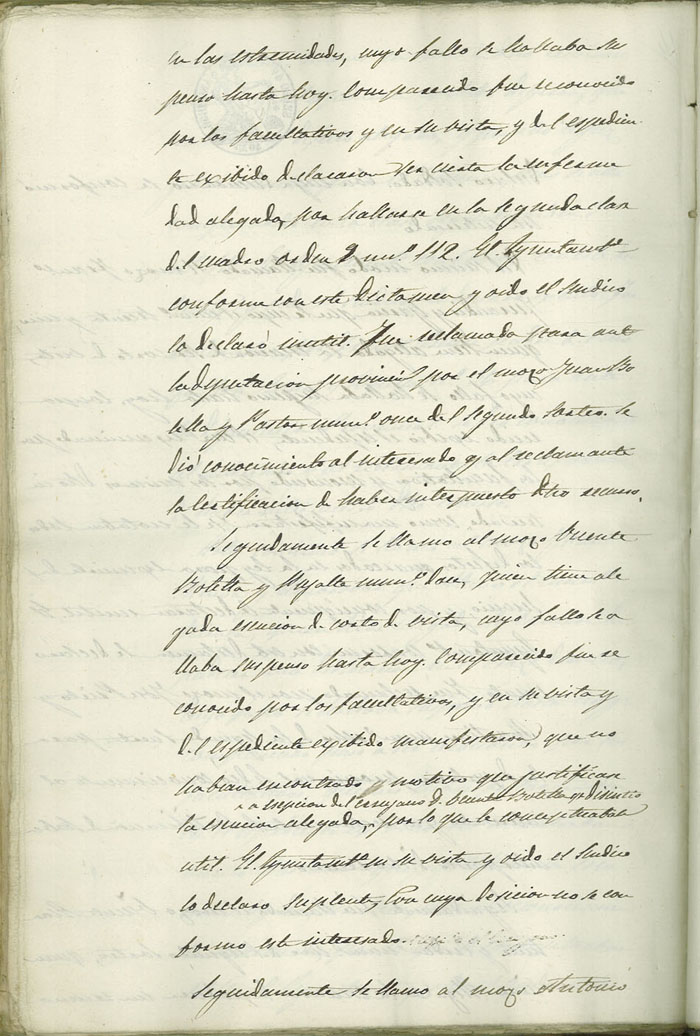 en las estremidades, cuyo fallo se hallaba sus
penso hasta hoy. Comparecido fue reconocido
por los facultativos y en su vista, y del espedien
te exibido declararon ser cierta la enferme
dad alegada, por hallarse en la segunda clase
del cuadro orden 2 num.º 112. El Ayuntam.to
conforme con este dictamen, y oido el Sindico
lo declaró inutil. Fue reclamado para ante
la Dyputacion provincial por el mozo Juan Bo
tella y Pastor num.º once del segundo Sorteo. Se
dió conocimiento al interesado y al reclamante
la Certificacion de haber interpuesto dho recurso.
Seguidamente se llamo al mozo Vicente
Botella y num.º doce, quien tiene ale
gada esencion de corto de vista, cuyo fallo se a
llaba suspenso hasta hoy. Comparecido fue re
conocido por los facultativos, y en su vista y
del espediente exibido manifestaron, que no
habian encontrado motivo que justificase
a esepcion del cirujano D. Vicente Botella que disintio
la esencion alegada, por lo que le conceptuaban
util. El Ayuntam.to en su vista y oido el Sindico
lo declaro suplente, con cuya desicion no se con
formo este interesado.
Seguidamente se llamo al mozo Antonio